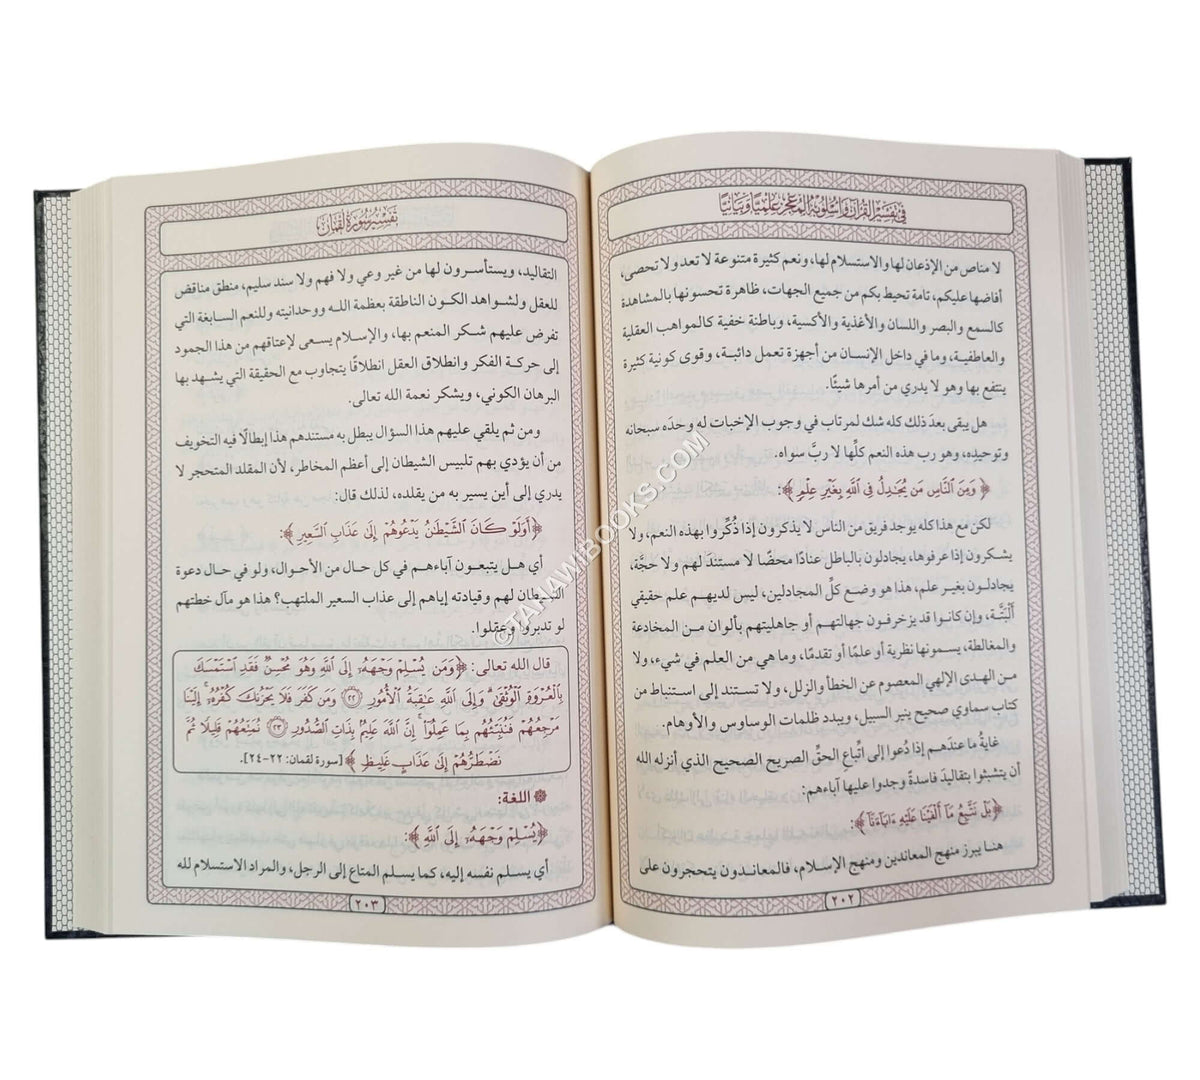 في تفسير القرآن وأسلوبه المعجز علميًّا وبيانيًّا
لا مناص من الإذعان لها والاستسلام لها، ونعم كثيرة متنوعة لا تعد ولا تحصى،
أفاضها عليكم، تامة تحيط بكم من جميع الجهات، ظاهرة تحسونها بالمشاهدة
كالسمع والبصر واللسان والأغذية والأكسية، وباطنةٍ خفية كالمواهب العقلية
والعاطفية، وما في داخل الإنسان من أجهزة تعمل دائبة، وقوى كونية كثيرة
ينتفع بها وهو لا يدري من أمرها شيئًا.
هل يبقى بعدَ ذلك كله شك لمرتاب في وجوب الإخبات له وحدَه سبحانه
وتوحيدِه، وهو رب هذه النعم كلِّها لا ربَّ سواه.
﴿وَمِنَ النَّاسِ مَن يُجَٰدِلُ فِى اللَّهِ بِغَيْرِ عِلْمٍ﴾:
لكن مع هذا كله يوجد فريق من الناس لا يذكرون إذا ذُكِّروا بهذه النعم، ولا
يشكرون إذا عرفوها، يجادلون بالباطل عنادًا محضًا لا مستندَ لهم ولا حجَّة،
يجادلون بغير علم، هذا هو وضع كلِّ المجادلين، ليس لديهم علم حقيقي
أَلْبَتَّة، وإن كانوا قد يزخرفون جهالتهم أو جاهليتهم بألوان من المخادعة
والمغالطة، يسمونها نظرية أو علمًا أو تقدمًا، وما هي من العلم في شيء، ولا
من الهدى الإلهي المعصوم عن الخطأ والزلل، ولا تستند إلى استنباط من
كتاب سماوي صحيح ينير السبيل، ويبدد ظلمات الوساوس والأوهام.
غايةُ ما عندَهم إذا دُعوا إلى اتِّباع الحقِّ الصريح الصحيح الذي أنزله الله
أن يتشبثوا بتقاليدَ فاسدةٍ وجدوا عليها آباءهم:
﴿بَلْ نَتَّبِعُ مَا أَلْفَيْنَا عَلَيْهِ ءَابَاءَنَا﴾:
هنا يبرز منهج المعاندين ومنهج الإسلام، فالمعاندون يتحجرون على
٢٠٢
تفسير سورة لقمان
التقاليد، ويستأسرون لها من غير وعي ولا فهم ولا سند سليم، منطق مناقض
للعقل ولشواهد الكون الناطقة بعظمة الله ووحدانيته وللنعم السابغة التي
تفرض عليهم شكر المنعم بها، والإسلام يسعى لإعتاقهم من هذا الجمود
إلى حركة الفكر وانطلاق العقل انطلاقًا يتجاوب مع الحقيقة التي يشهد بها
البرهان الكوني، ويشكر نعمة الله تعالى.
ومن ثم يلقي عليهم هذا السؤال يبطل به مستندهم هذا إبطالًا فيه التخويف
من أن يؤدي بهم تلبيس الشيطان إلى أعظم المخاطر، لأن المقلد المتحجر لا
يدري إلى أين يسير به من يقلده، لذلك قال:
﴿أَوَلَوْ كَانَ الشَّيْطَٰنُ يَدْعُوهُمْ إِلَىٰ عَذَابِ السَّعِيرِ﴾:
أي هل يتبعون آباءهم في كل حال من الأحوال، ولو في حال دعوة
الشيطان لهم وقيادته إياهم إلى عذاب السعير الملتهب؟ هذا هو مآل خطتهم
لو تدبروا وعقلوا.
قال الله تعالى: ﴿وَمَن يُسْلِمْ وَجْهَهُۥ إِلَى اللَّهِ وَهُوَ مُحْسِنٌ فَقَدِ اسْتَمْسَكَ
بِالْعُرْوَةِ الْوُثْقَىٰ ۗ وَإِلَى اللَّهِ عَٰقِبَةُ الْأُمُورِ ٢٢ وَمَن كَفَرَ فَلَا يَحْزُنكَ كُفْرُهُۥ ۚ إِلَيْنَا
مَرْجِعُهُمْ فَنُنَبِّئُهُم بِمَا عَمِلُوا ۚ إِنَّ اللَّهَ عَلِيمٌ بِذَاتِ الصُّدُورِ ٢٣ نُمَتِّعُهُمْ قَلِيلًا ثُمَّ
نَضْطَرُّهُمْ إِلَىٰ عَذَابٍ غَلِيظٍ﴾ [سورة لقمان: ٢٢-٢٤].
اللغة:
﴿يُسْلِمْ وَجْهَهُۥ إِلَى اللَّهِ﴾:
أي يسلم نفسه إليه، كما يسلم المتاع إلى الرجل، والمراد الاستسلام لله
٢٠٣
©TAHAWIBOOKS.COM